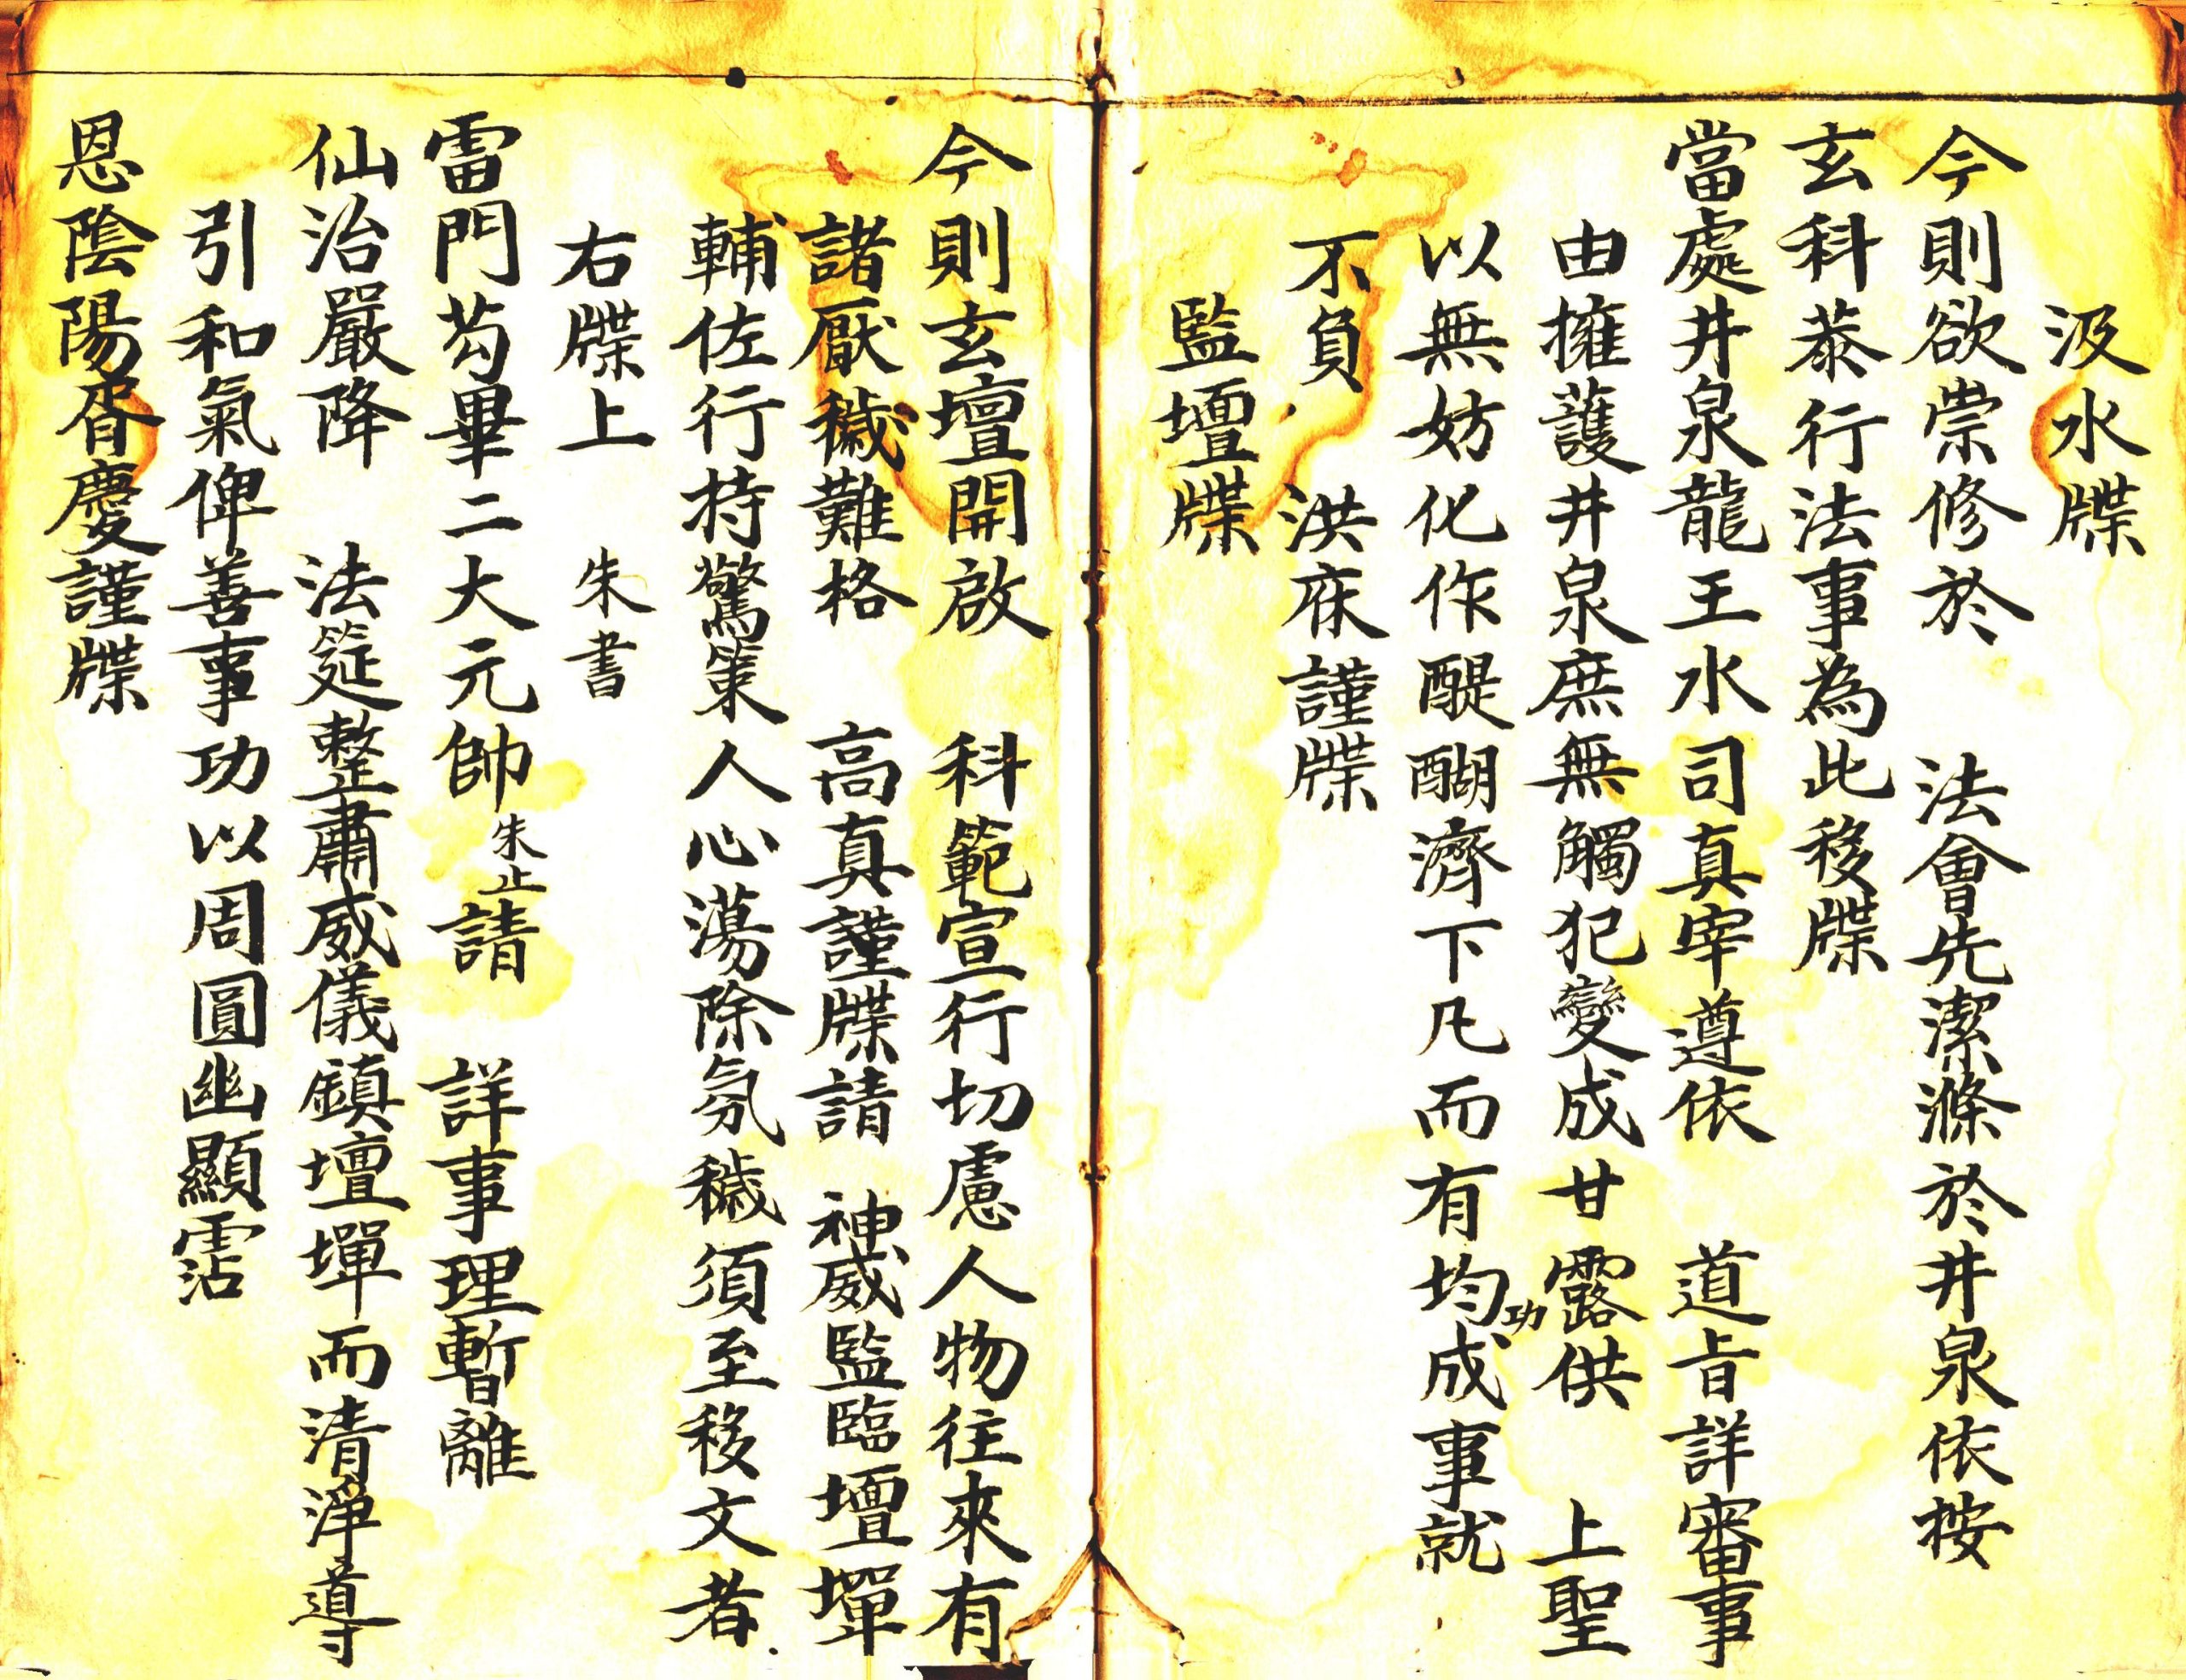 汲水牒
今則欲崇修於　法會先潔滌於井泉依按
玄科恭行法事為此移牒
當處井泉龍王水司真宰遵依　道旨詳審事
由擁護井泉庶無觸犯變成甘露供　上聖
以無妨化作醍醐濟下凡而有均功成事就
不負　洪庥謹牒
監壇牒
今則玄壇開啟　科範宣行切慮人物往來有
諸厭穢難格　高真謹牒請　神威監臨壇墠
輔佐行持驚策人心蕩除氛穢須至移文者
右牒上　朱書
雷門苟畢二大元帥朱止請　詳事理暫離
仙治嚴降　法筵整肅威儀鎮壇墠而清淨導
引和氣俾善事功以周圓幽顯霑
恩陰陽胥慶謹牒